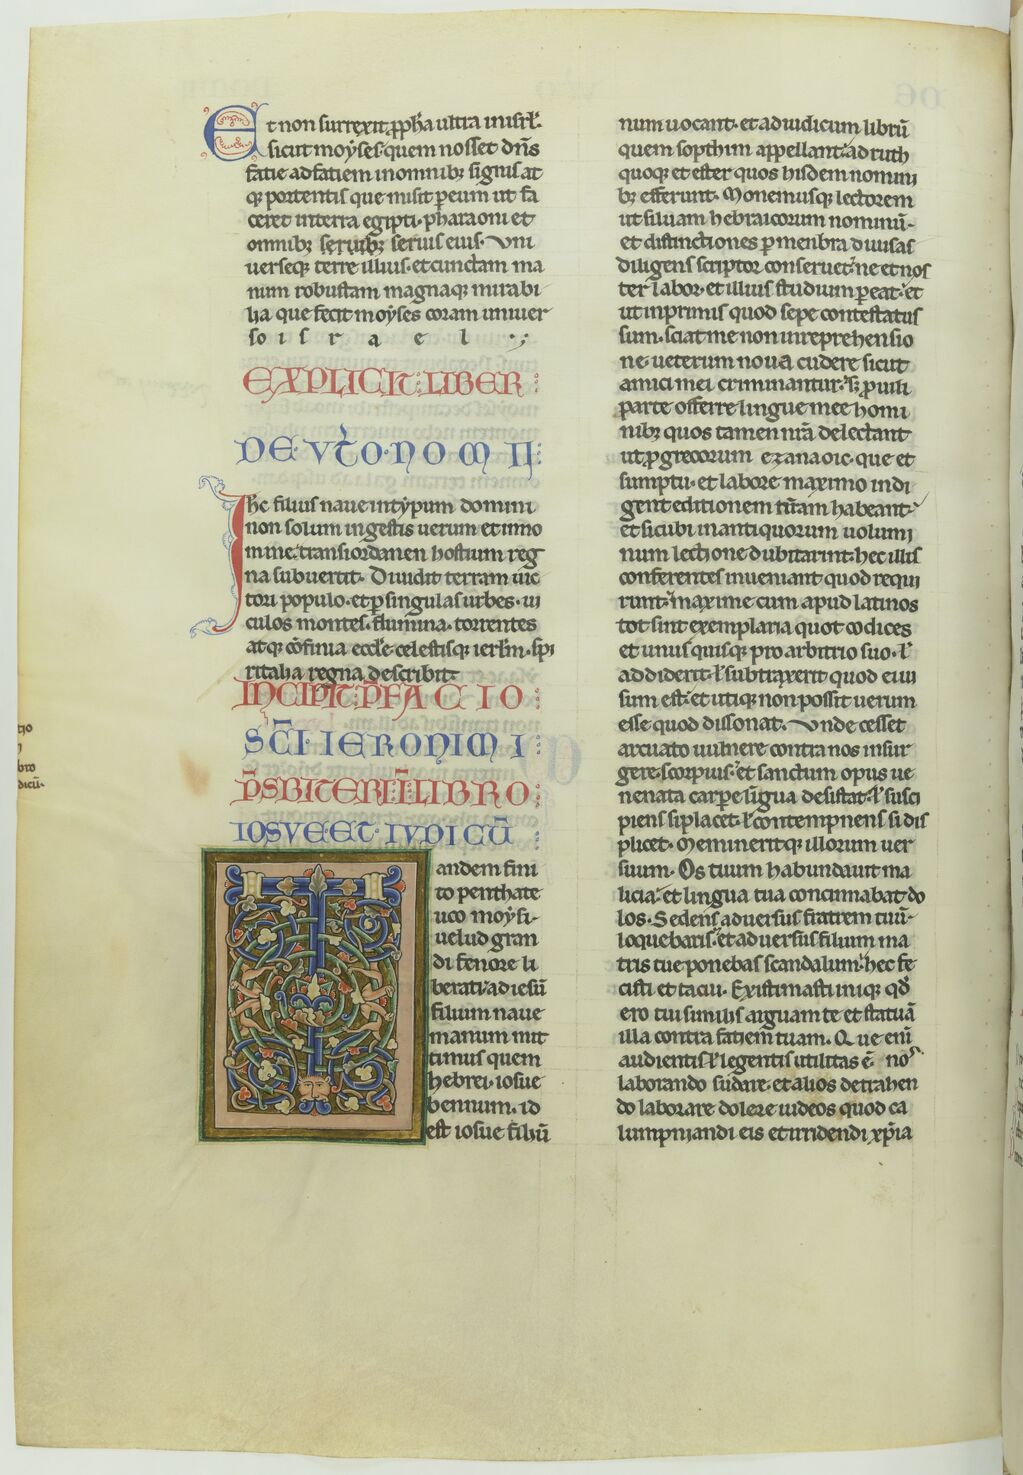 Et non surrexit ꝓpha ultra inisrl̄.
sicut moẏses quem nosset dn̄s
fatie ad fatiem in omnibꝫ signis at
qꝫ portentis que misit ꝑeum ut fa
ceret interra egipti· pharaoni et
omnibꝫ seruibꝫ seruis eius· Vni
uerseqꝫ terre illius· et cunctam ma
num robustam magnaqꝫ mirabi
lia que fecit moẏses coram uniuer
so israel·
EXPLICIT: LIBER
DEVT̄O·NOMII:
Ihc filius naue intẏpum domini
non solum ingestis uerum et inno
mine· transiordanen hostium reg
na subuertit· Diuidit terram uic
tori populo· et ꝑ singulas urbes· ui
culos montes· flumina· torrentes
atqꝫ cōfinia eccl̄e celestisqꝫ ierlm̄· spi
ritalia regna describit·
INCIPIT: P̄FACIO
SC̄I· IERONIMI
P̄SBITERI· Ī· LIBRO
IOSVE· ET· IVDICŪ
Tandem fini
to penthate
uco moẏsi·
uelud gran
di fenore li
berati· ad iesū
filium naue
manum mit
timus quem
hebrei· iosue
bennum· id
est iosue filiū
num uocant· et ad iudicum librū
quem sopthim appellant· ad ruth
quoqꝫ et ester quos hisdem nomini
bꝫ efferunt· Monemusqꝫ lectorem
ut siluam hebraicorum nominū·
et distinctiones ꝑ menbra diuisas
diligens scriptor conseruet· ne et nos
ter labor· et illius studium ꝑeat· et
ut inprimis quod sepe contestatus
sum· sciat me non inreprehensio
ne· ueterum noua cudere sicut
amici mei criminantur· sꝫ ꝓ uili
parte offerre lingue mee homi
nibꝫ quos tamen nr̄a delectant
ut ꝓ grecorum exanaoic· que et
sumptu· et labore maximo indi
gent editionem nr̄am habeant·
et sicubi in antiquorum uolumi
num lectione dubitarint· hec illis
conferentes inueniant quod requi
runt· maxime cum apud latinos
tot sint exemplaria quot codices
et unusquisqꝫ pro arbitrio suo· ł
addiderit· ł subtraxerit quod ei ui
sum est· et utiqꝫ non possit uerum
esse quod dissonat· Vnde cesset
arcuato uulnere contra nos insur
gere· scorpius· et sanctum opus ue
nenata carpe līgua desistat· ł susci
piens si placet· ł contempnens si dis
plicet· Memineritqꝫ illorum uer
suum· Os tuum habundauit ma
licia· et lingua tua concinnabat do
los· Sedens aduersus fratrem tuū·
loquebaris· et aduersus filium ma
tris tue ponebas scandalum· hec fe
cisti et tacui· Existimasti inique qđ
ero tui similis arguam te et statuā
illa contra fatiem tuam· Que enī
audientis ł legentis utilitas ē· nos
laborando sudare· et alios detrahen
do laborare dolere iudeos quod ca
lumpniandi eis et irridendi xp̄ia